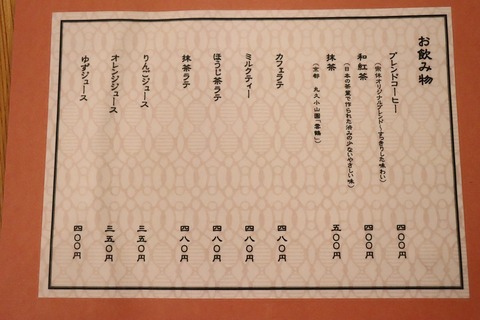 お飲み物
ブレンドコーヒー 四〇〇円
(宗休オリジナルブレンド〜すっきりした味わい)
和紅茶 四〇〇円
(日本の茶葉で作られた渋みの少ないやさしい味)
抹茶 五〇〇円
(京都 丸久小山園「雲鶴」)
カフェラテ 四八〇円
ミルクティー 四八〇円
ほうじ茶ラテ 四八〇円
抹茶ラテ 四八〇円
りんごジュース 三五〇円
オレンジジュース 三五〇円
ゆずジュース 四〇〇円